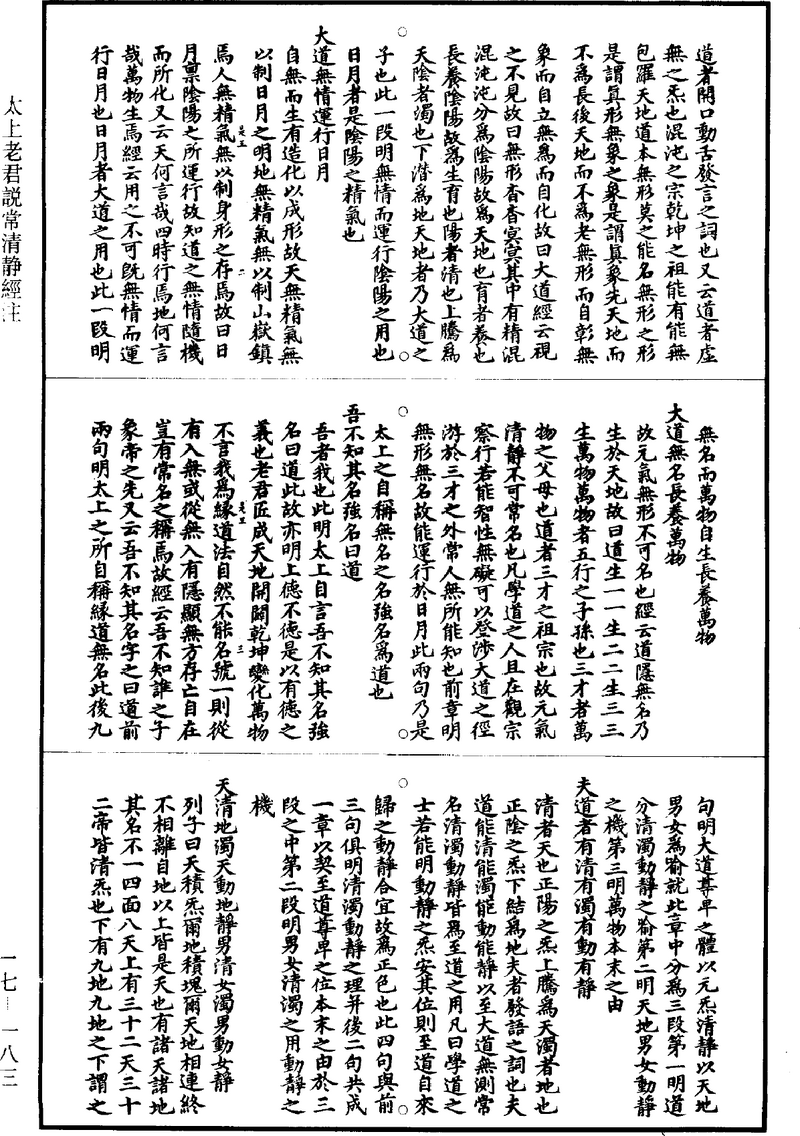 道者開口動舌發言之詞也又云道者虛
無之炁也混沌之宗乾坤之祖能有能無
包羅天地道本無形莫之能名無形之形
是謂真形無象之象是謂真象先天地而
不為長後天地而不為老無形而自彰無
象而自立無為而自化故曰大道經云視
之不見故曰無形杳杳冥冥其中有精混
混沌沌分為陰陽故為天地也育者養也
長養陰陽故為生育也陽者清也上騰為
天陰者濁也下潛為地天地者乃大道之
子也此一段明無情而運行陰陽之用也
日月者是陰陽之精氣也
大道無情運行日月
自無而生有造化以成形故天無精氣無
以制日月之明地無精氣無以制山嶽鎮
焉人無精氣無以制身形之存焉故曰日
月禀陰陽之所運行故知道之無情隨機
而所化又云天何言哉四時行焉地何言
哉萬物生焉經云用之不可既無情而運
行日月也日月者大道之用也此一段明
無名而萬物自生長養萬物
大道無名長養萬物
故元氣無形不可名也經云道隱無名乃
生於天地故曰道生一一生二二生三三
生萬物萬物者五行之子孫也三才者萬
物之父母也道者三才之祖宗也故元氣
清靜不可常名也凡學道之人且在觀宗
察行若能智性無礙可以登涉大道之徑
游於三才之外常人無所能知也前章明
無形無名故能運行於日月此兩句乃是
太上之自稱無名之名強名為道也
吾不知其名強名曰道
吾者我也此明太上自言吾不知其名強
名曰道此故亦明上德不德是以有德之
義也老君匠成天地開闢乾坤變化萬物
不言我為緣道法自然不能名號一則從
有入無或從無入有隱顯無方存亡自在
豈有常名之稱焉故經云吾不知誰之子
象帝之先又云吾不知其名字之曰道前
兩句明太上之所自稱緣道無名此後九
句明大道尊卑之體以元炁清靜以天地
男女為喻就此章中分為三段第一明道
分清濁動靜之喻第二明天地男女動靜
之機第三明萬物本末之由
夫道者有清有濁有動有靜
清者天也正陽之炁上騰為天濁者地也
正陰之炁下結為地夫者發語之詞也夫
道能清能濁能動能靜以至大道無測常
名清濁動靜皆為至道之用凡曰學道之
士若能明動靜之炁安其位則至道自來
歸之動靜合宜故為正色也此四句與前
三句俱明清濁動靜之理并後二句共成
一章以契至道尊卑之位本末之由於三
段之中第二段明男女清濁之用動靜之
機
天清地濁天動地靜男清女濁男動女靜
列子曰天積炁爾地積塊爾天地相連終
不相離自地以上皆是天也有諸天諸地
其名不一四面八天上有三十二天三十
二帝皆清炁也下有九地九地之下謂之
太上老君說常清靜經注
一七—一八三